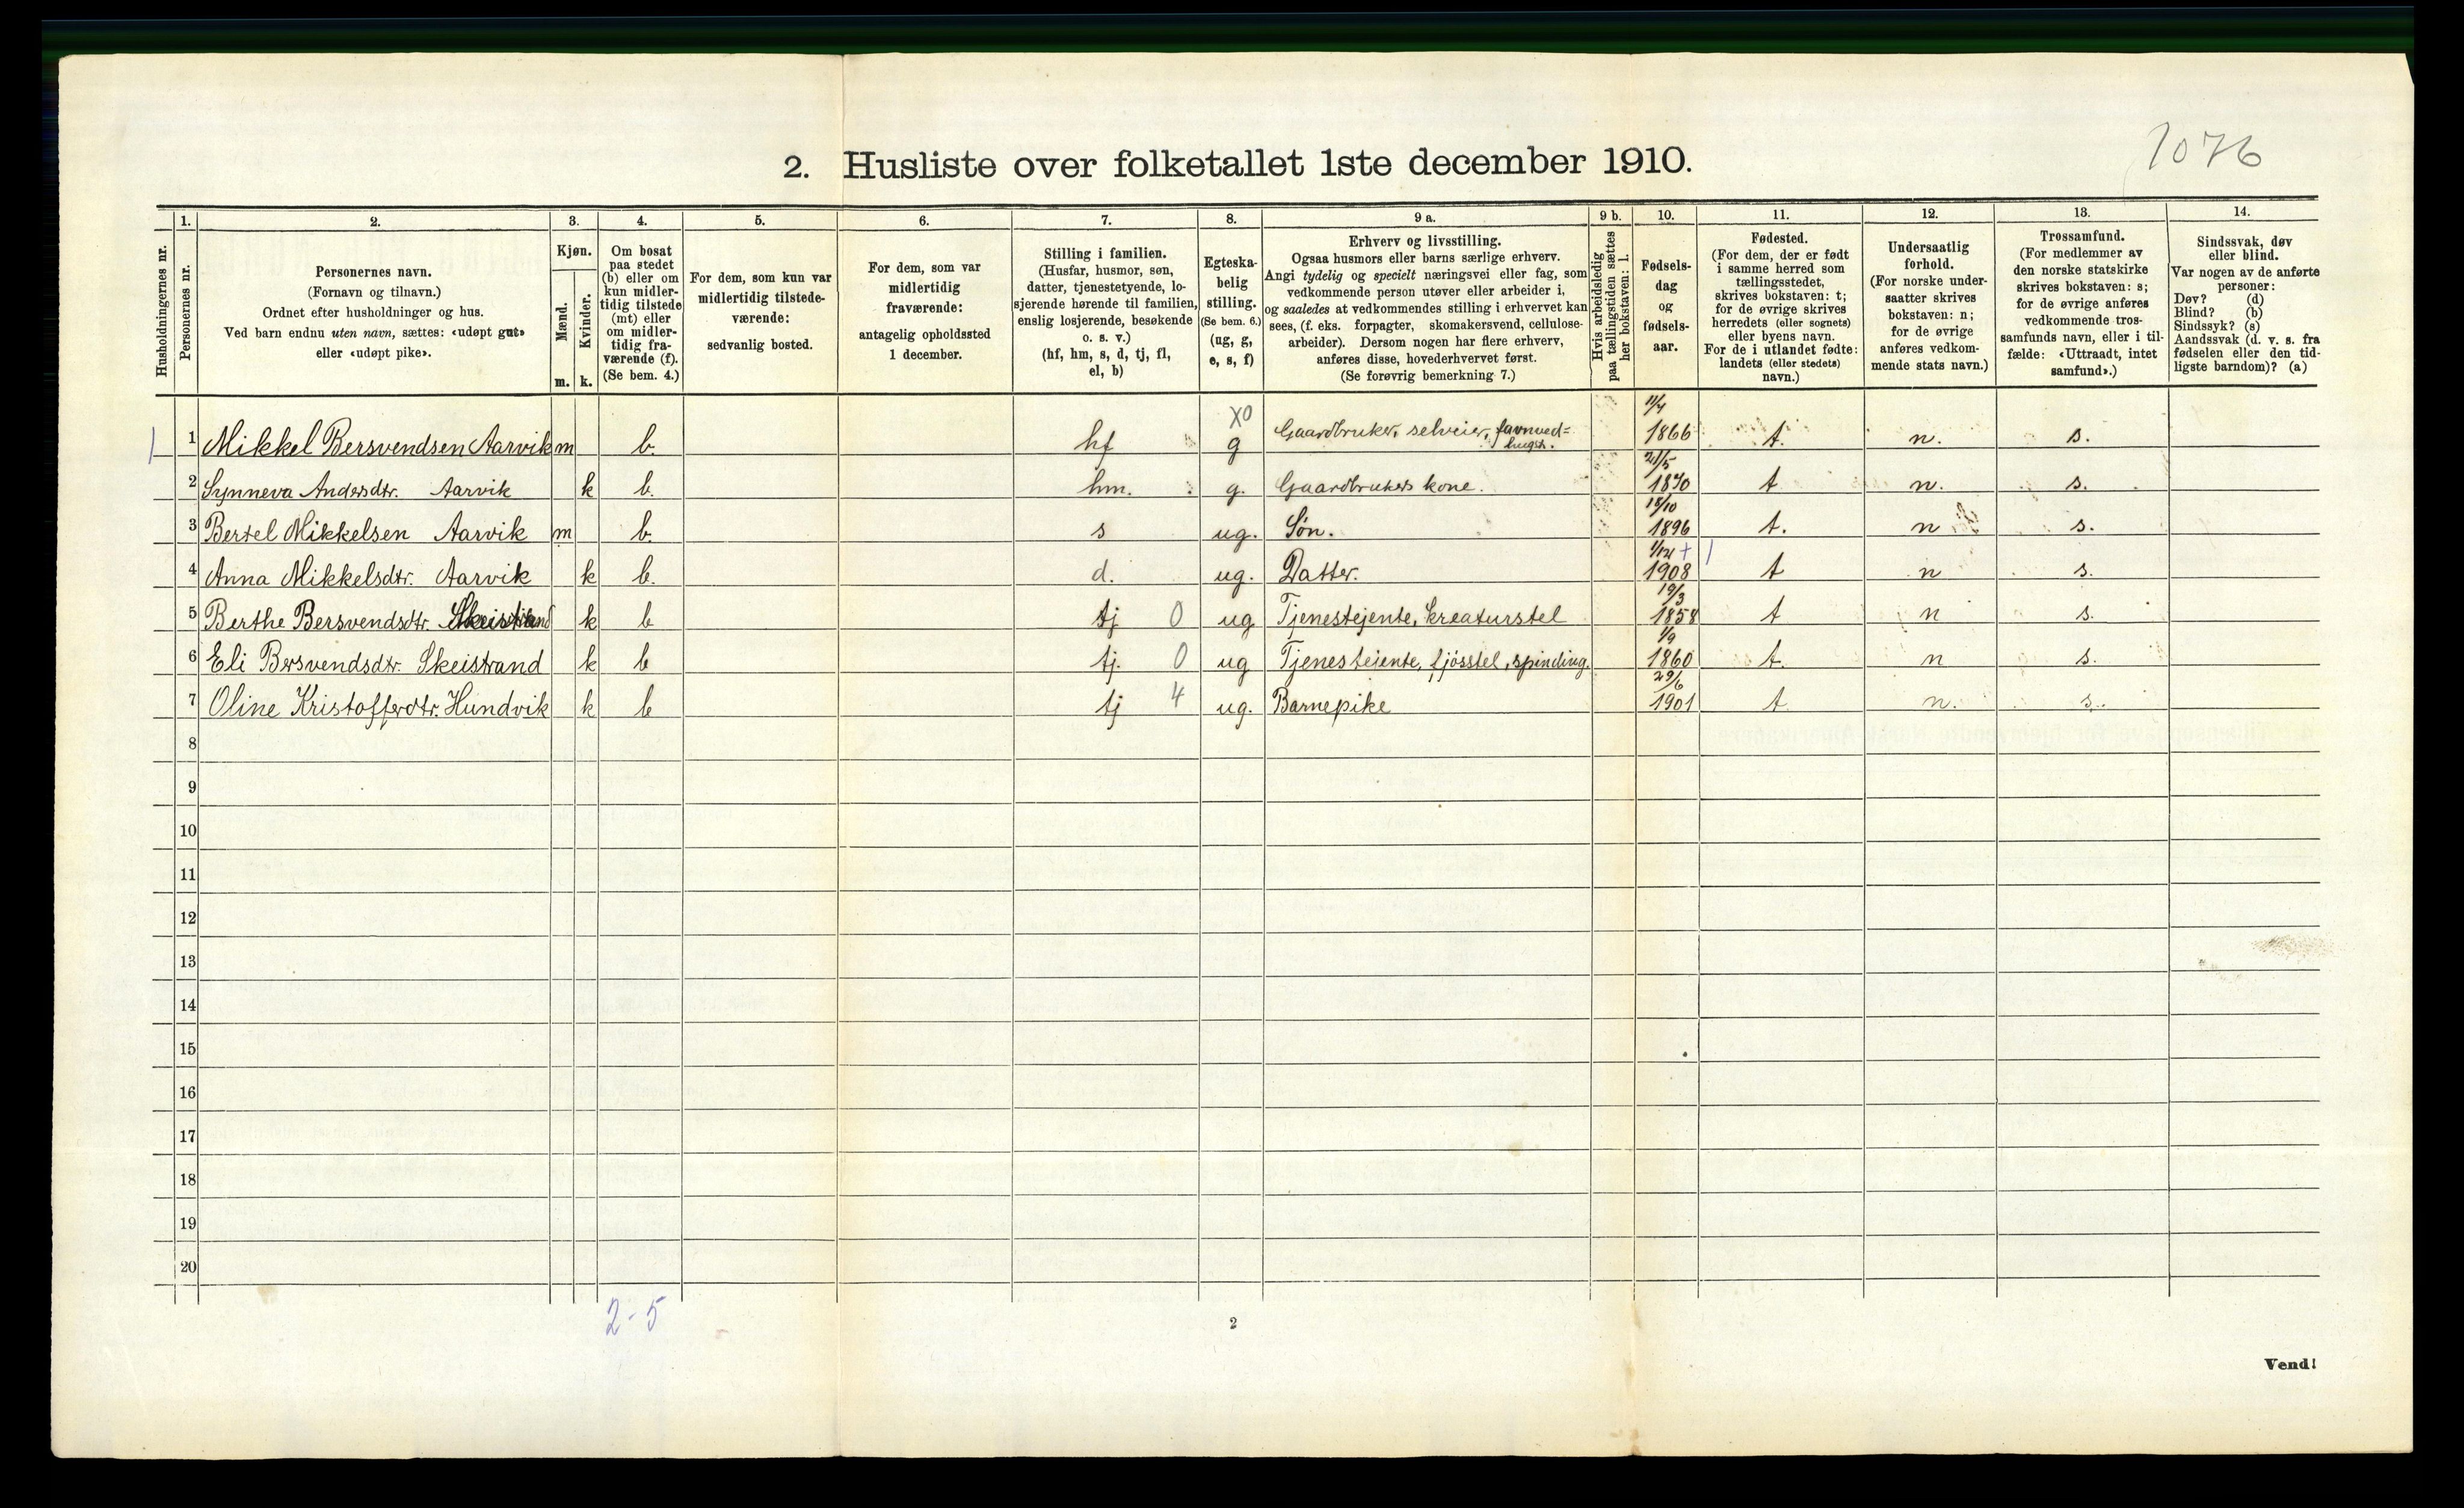 1076
2. Husliste over folketallet 1ste december 1910.
Husholdningernes nr.
1. Personernes nr.
2. Personernes navn.
(Fornavn og tilnavn.)
Ordnet efter husholdninger og hus.
Ved barn endnu uten navn, sættes: «udøpt gut»
eller «udøpt pike».
3. Kjøn.
Mænd. m.
Kvinder. k.
4. Om bosat
paa stedet
(b) eller om
kun midler-
tidig tilstede
(mt) eller
om midler-
tidig fra-
værende (f).
(Se bem. 4.)
5. For dem, som kun var
midlertidig tilstede-
værende:
sedvanlig bosted.
6. For dem, som var
midlertidig
fraværende:
antagelig opholdssted
1 december.
7. Stilling i familien.
(Husfar, husmor, søn,
datter, tjenestetyende, lo-
sjerende hørende til familien,
enslig losjerende, besøkende
o. s. v.)
(hf, hm, s, d, tj, fl,
el, b)
8. Egteska-
belig
stilling.
(Se bem. 6.)
(ug, g,
e, s, f)
9 a. Erhverv og livsstilling.
Ogsaa husmors eller barns særlige erhverv.
Angi tydelig og specielt næringsvei eller fag, som
vedkommende person utøver eller arbeider i,
og saaledes at vedkommendes stilling i erhvervet kan
sees, (f. eks. forpagter, skomakersvend, cellulose-
arbeider). Dersom nogen har flere erhverv,
anføres disse, hovederhvervet først.
(Se forøvrig bemerkning 7.)
9 b. Hvis arbeidsledig
paa tællingstiden sættes
her bokstaven: l.
10. Fødsels-
dag
og
fødsels-
aar.
11. Fødested.
(For dem, der er født
i samme herred som
tællingsstedet,
skrives bokstaven: t;
for de øvrige skrives
herredets (eller sognets)
eller byens navn.
For de i utlandet fødte:
landets (eller stedets)
navn.)
12. Undersaatlig
forhold.
(For norske under-
saatter skrives
bokstaven: n;
for de øvrige
anføres vedkom-
mende stats navn.)
13. Trossamfund.
(For medlemmer av
den norske statskirke
skrives bokstaven: s;
for de øvrige anføres
vedkommende tros-
samfunds navn, eller i til-
fælde: «Uttraadt, intet
samfund».)
14. Sindssvak, døv
eller blind.
Var nogen av de anførte
personer:
Døv? (d)
Blind? (b)
Sindssyk? (s)
Aandssvak (d. v. s. fra
fødselen eller den tid-
ligste barndom)? (a)
1 1 Mikkel Bersvendsen Aarvik m b. hf X0 g Gaardbruker, selveier, favnved=hugst. 11/4 1866 t. n. s.
2 Synneva Andersdtr. Aarvik k b. hm. g. Gaardbrukers kone. 21/5 1870 t n. s.
3 Bertel Mikkelsen Aarvik m b. s ug. Søn. 18/10 1896 t. n s.
4 Anna Mikkelsdtr. Aarvik k b. d. ug. Datter. 1/12 + 1908 1 t n s.
5 Berthe Bersvendsdtr. Skeistrand k b tj 0 ug Tjenestejente, kreaturstel 19/3 1858 t n s.
6 Eli Bersvendsdtr. Skeistrand k b tj. 0 ug Tjenestejente, fjösstel, spinding. 1/9 1860 t. n s.
7 Oline Kristofferdtr. Hundvik k b tj 4 ug. Barnepike 29/6 1901 t n. s.
8
9
10
11
12
13
14
15
16
17
18
19
20
2-5
2
Vend!